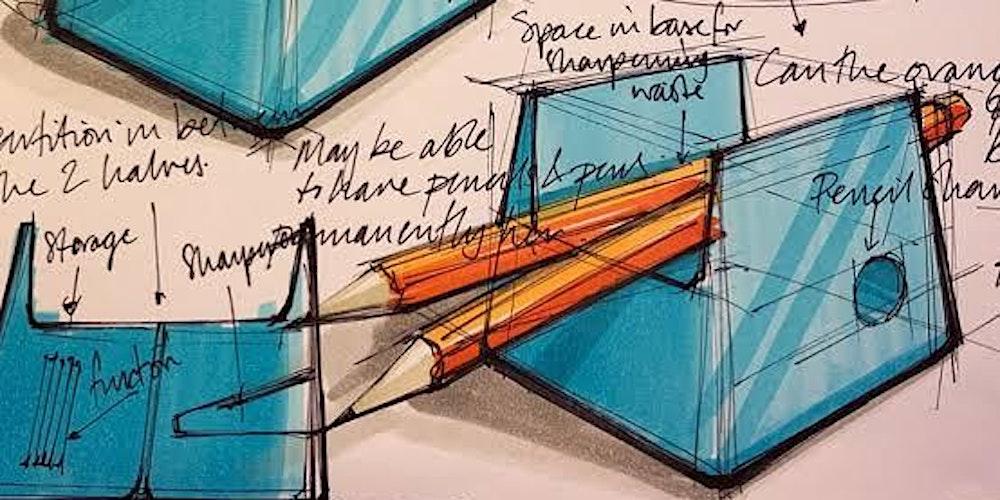 Space in base for
sharpening
waste
Can the orang
partition in between
the 2 halves.
May be able
to have pencils & pens
permanently here.
Storage
Sharpener
Pencil shar
function